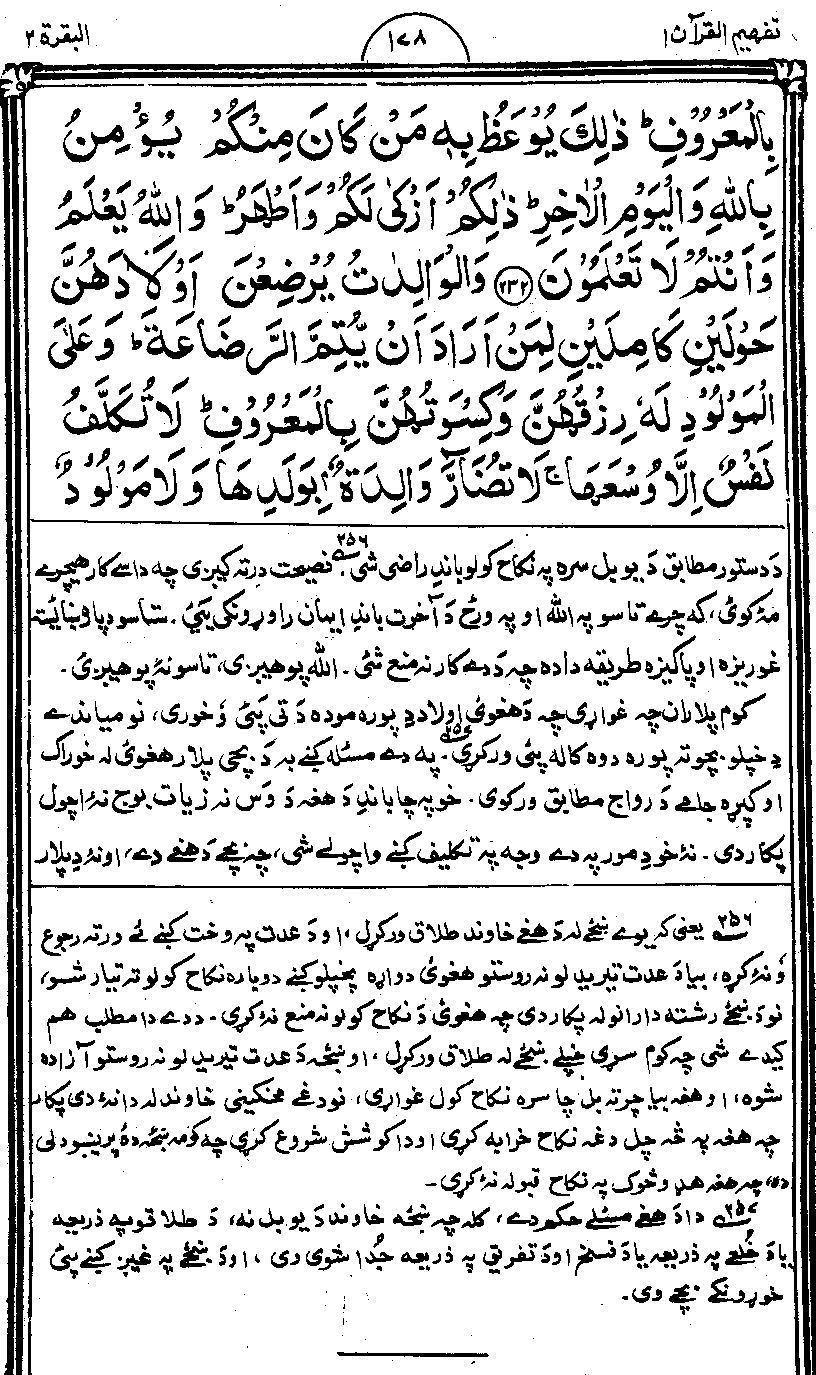 تفهيم القرآن ١
١٧٨
البقرة ٢
بِالْمَعْرُوْفِ ؕ ذٰلِكَ يُوْعَظُ بِهٖ مَنْ كَانَ مِنْكُمْ يُؤْمِنُ
بِاللّٰهِ وَالْيَوْمِ الْاٰخِرِ ؕ ذٰلِكُمْ اَزْكٰى لَكُمْ وَاَطْهَرُ ؕ وَاللّٰهُ يَعْلَمُ
وَاَنْتُمْ لَا تَعْلَمُوْنَ ﴿٢٣٢﴾ وَالْوَالِدٰتُ يُرْضِعْنَ اَوْلَادَهُنَّ
حَوْلَيْنِ كَامِلَيْنِ لِمَنْ اَرَادَ اَنْ يُّتِمَّ الرَّضَاعَةَ ؕ وَعَلَى
الْمَوْلُوْدِ لَهٗ رِزْقُهُنَّ وَكِسْوَتُهُنَّ بِالْمَعْرُوْفِ ؕ لَا تُكَلَّفُ
نَفْسٌ اِلَّا وُسْعَهَا ۚ لَا تُضَآرَّ وَالِدَةٌۢ بِوَلَدِهَا وَلَا مَوْلُوْدٌ
د دستور مطابق د يو بل سره په نکاح کولو باندِ راضی شی ٢٥٦. نصيحت درته کيږی چه داسے کار هيچرے
مۀ کوئ، که چرے تاسو په الله او په ورځ د آخرت باندِ ايمان راوړونکی يئ. ستاسو دپاره ښائيسته
غوريزه او پاکيزه طريقه دا ده چه د دے کار نه منع شئ. الله پوهيږی، تاسو نۀ پوهيږئ.
کوم پلاران چه غواړی چه د هغوئ اولاد دِ پوره موده د تی پئ وخوری، نو مياندے
دِ خپلو بچو ته پوره دوه کاله پئ ورکړی ٢٥٧. په دے مسئله کښے به د بچی پلار هغوئ له خوراک
او کپړه جامے د رواج مطابق ورکوی. خو په چا باندِ د هغه د وس نه زيات بوج نۀ اچول
پکار دی. نۀ خو دِ مور په دے وجه په تکليف کښے واچولے شی، چه بچے د هغے دے، او نۀ دِ پلار
٢٥٦ يعنی که يوے ښځے له د هغے خاوند طلاق ورکړل، او د عدت په وخت کښے ئے ورته رجوع
ونۀ کړه، بيا د عدت تيريدلو نه روستو هغوئ دواړه پخپلو کښے دوباره نکاح کولو ته تيار شو،
نو د ښځے رشته دارانو له پکار دی چه هغوئ د نکاح کولو نه منع نۀ کړی. د دے دا مطلب هم
کيدے شی چه کوم سړی خپلے ښځے له طلاق ورکړل، او ښځه د عدت تيريدلو نه روستو آزاده
شوه، او هغه بيا چرته بل چا سره نکاح کول غواړی، نو د غے مخکينی خاوند له دا نۀ دی پکار
چه هغه په څه چل دغه نکاح خرابه کړی او دا کوشش شروع کړی چه کومه ښځه دۀ پريښودلی
ده، چه هغه هډو څوک په نکاح قبوله نۀ کړی۔
٢٥٧ دا د هغے مسئلے حکم دے، کله چه ښځه خاوند د يو بل نه، د طلاق په ذريعه
يا د خُلعے په ذريعه يا د فسخ او د تفريق په ذريعه جُدا شوی وی، او د ښځے په غيږ کښے پئ
خوړونکے بچے وی.